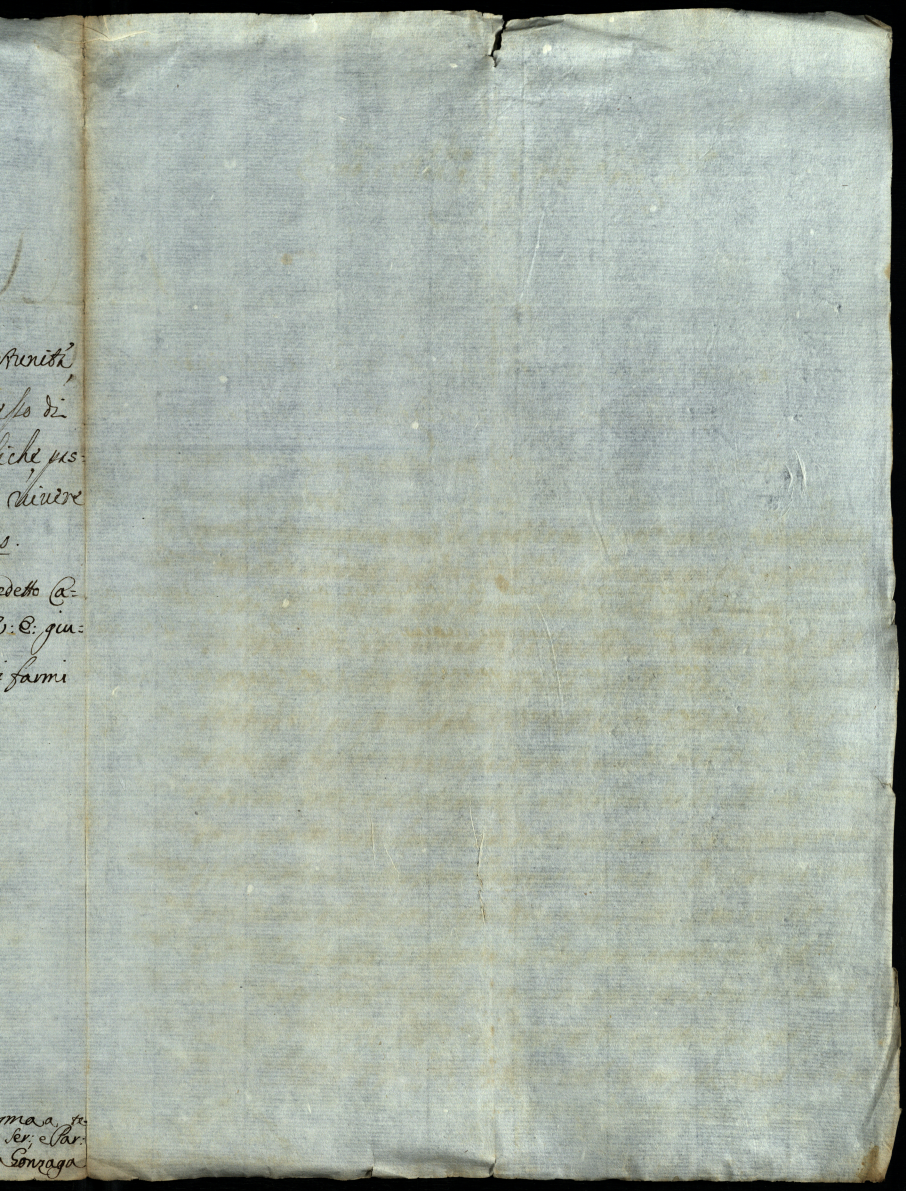 tunità,
sto di
iche pas=
vivere
s.
edetto Ca=
V: E: giu=
i farmi
ma a, te=
Ser:, e Par:
Gonzaga